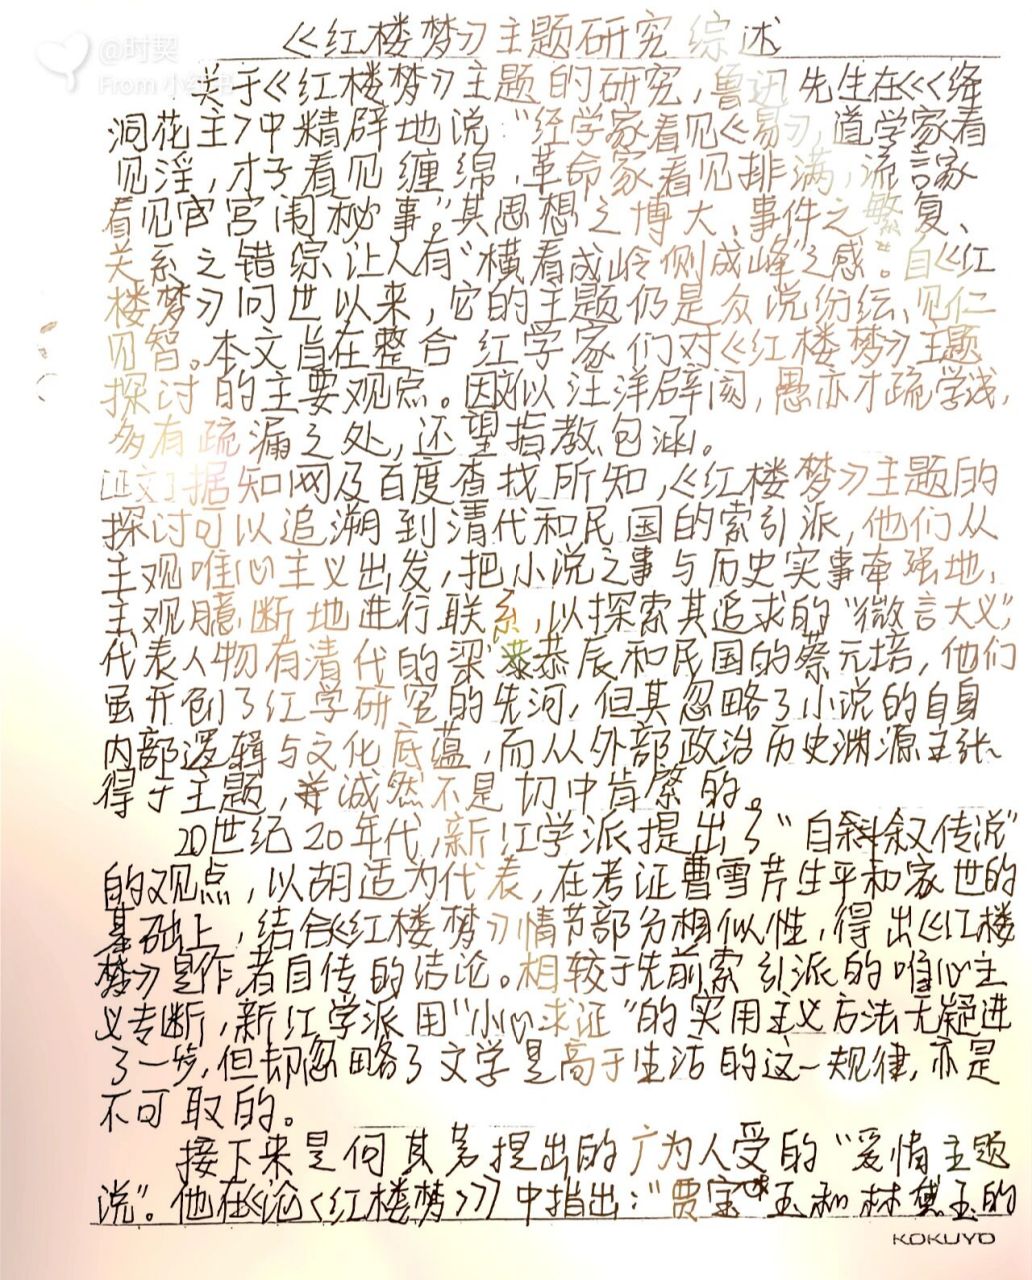 《红楼梦》主题研究综述
@时契
From 小红书
关于《红楼梦》主题的研究,鲁迅先生在《<绛
洞花主>中精辟地说“经学家看见《易》,道学家看
见淫,才子看见缠绵,革命家看见排满,流言家
看见宫闱秘事。”其思想之博大、事件之繁复、
关系之错综让人有“横看成岭侧成峰”之感。自《红
楼梦》问世以来,它的主题仍是众说纷纭、见仁
见智。本文旨在整合红学家们对《红楼梦》主题
探讨的主要观点。因以汪洋辟阔,愚亦才疏学浅,
多有疏漏之处,还望指教包涵。
[正文]据知网及百度查找所知,《红楼梦》主题的
探讨可以追溯到清代和民国的索引派,他们从
主观唯心主义出发,把小说之事与历史实事牵强地、
主观臆断地进行联系,以探索其追求的“微言大义”,
代表人物有清代的梁恭辰和民国的蔡元培,他们
虽开创了红学研究的先河,但其忽略了小说的自身
内部逻辑与文化底蕴,而从外部政治历史渊源主张
得于主题,并诚然不是切中肯綮的。
20世纪20年代,新红学派提出了“自叙传说”
的观点,以胡适为代表,在考证曹雪芹生平和家世的
基础上,结合《红楼梦》情节部分相似性,得出《红楼
梦》是作者自传的结论。相较于先前索引派的唯心主
义专断,新红学派用“小心求证”的实用主义方法无疑进
了一步,但却忽略了文学是高于生活的这一规律,亦是
不可取的。
接下来是何其芳提出的广为人受的“爱情主题
说”。他在《论<红楼梦>》中指出:“贾宝玉和林黛玉的
KOKUYO